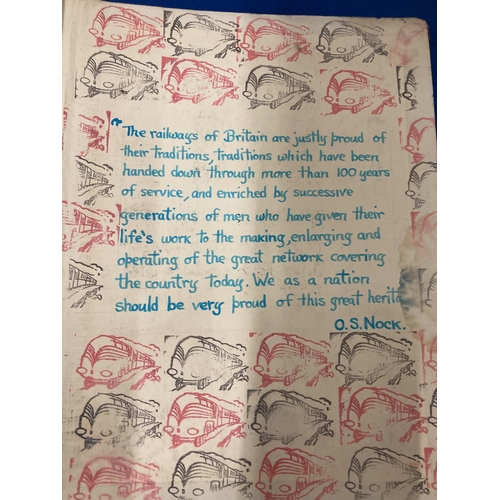 "The railways of Britain are justly proud of
their traditions, traditions which have been
handed down through more than 100 years
of service, and enriched by successive
generations of men who have given their
life's work to the making, enlarging and
operating of the great network covering
the country today. We as a nation
should be very proud of this great herita
O.S. Nock.